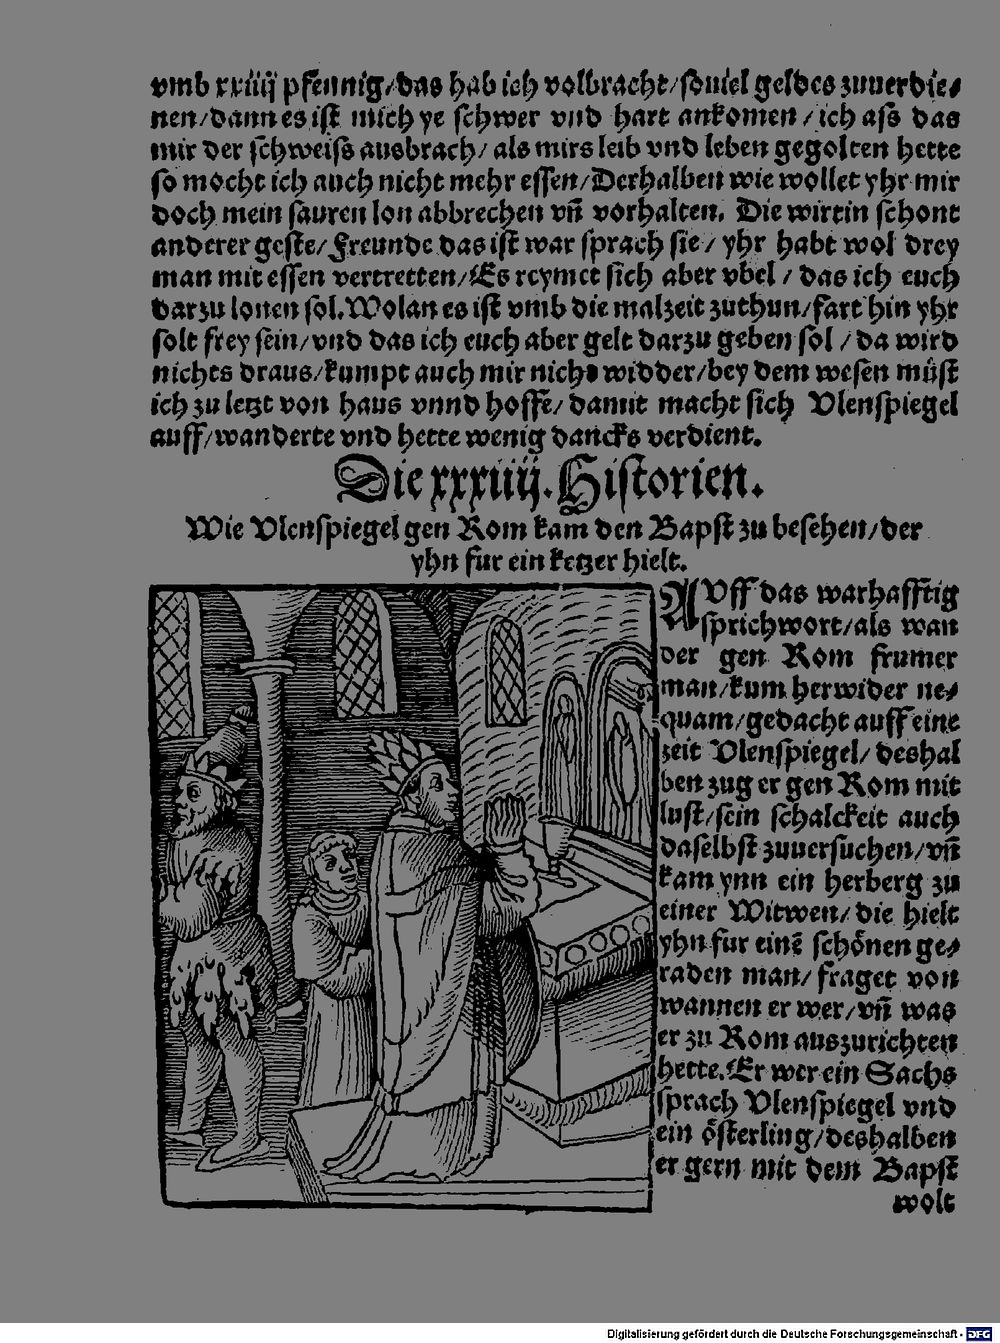 vmb xxiiij pfennig/das hab ich volbracht/souiel geldes zuuerdie⸗
nen/dann es ist mich ye schwer vnd hart ankomen/ich ass das
mir der schweiss ausbrach/als mirs leib vnd leben gegolten hette
so mocht ich auch nicht mehr essen/Derhalben wie wollet yhr mir
doch mein sauren lon abbrechen vñ vorhalten. Die wirtin schont
anderer geste/Freunde das ist war sprach sie/yhr habt wol drey
man mit essen vertretten/Es reymet sich aber vbel/das ich euch
darzu lonen sol. Wolan es ist vmb die malzeit zuthun/fart hin yhr
solt frey sein/vnd das ich euch aber gelt darzu geben sol/da wird
nichts draus/kumpt auch mir nicht widder/bey dem wesen müst
ich zu letzt von haus vnnd hoffe/damit macht sich Vlenspiegel
auff/wanderte vnd hette wenig dancks verdient.
Die xxxiiij. Historien.
Wie Vlenspiegel gen Rom kam den Bapst zu besehen/der
yhn fur ein ketzer hielt.
AVff das warhafftig
sprichwort/als wan
der gen Rom frumer
man/kum herwider ne⸗
quam/gedacht auff eine
zeit Vlenspiegel/deshal
ben zug er gen Rom mit
lust/sein schalckeit auch
daselbst zuuersuchen/vñ
kam ynn ein herberg zu
einer Witwen/die hielt
yhn fur einẽ schönen ge⸗
raden man/fraget von
wannen er wer/vñ was
er zu Rom auszurichten
hette. Er wer ein Sachs
sprach Vlenspiegel vnd
ein österling/deshalben
er gern mit dem Bapst
wolt
Digitalisierung gefördert durch die Deutsche Forschungsgemeinschaft - DFG